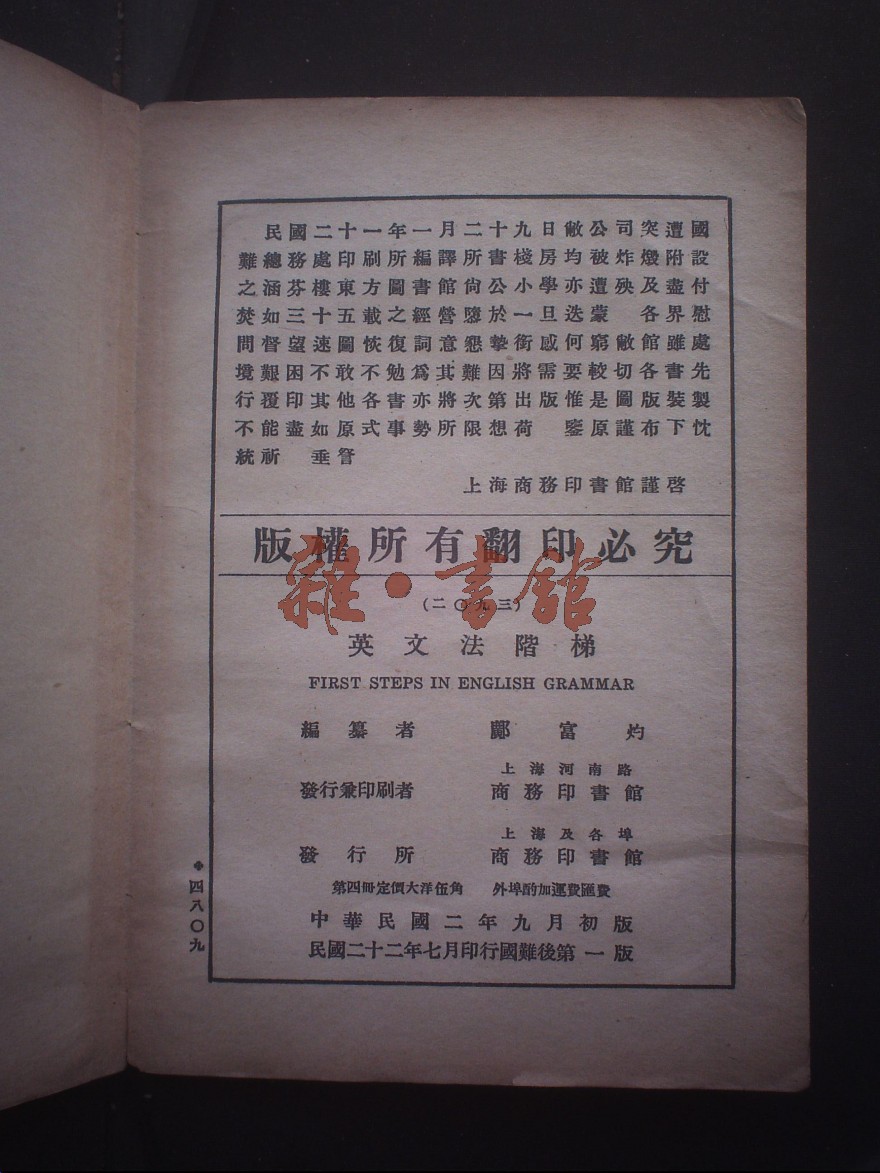 民國二十一年一月二十九日敝公司突遭國
難總務處印刷所編譯所書棧房均被炸燬附設
之涵芬樓東方圖書館尚公小學亦遭殃及盡付
焚如三十五載之經營墮於一旦迭蒙 各界慰
問督望速圖恢復詞意懇摯銜感何窮敝館雖處
境艱困不敢不勉爲其難因將需要較切各書先
行覆印其他各書亦將次第出版惟是圖版裝製
不能盡如原式事勢所限想荷 鑒原謹布下忱
統祈 垂詧
上海商務印書館謹啓
版權所有翻印必究
雜·書館
(二〇九三)
英文法階梯
FIRST STEPS IN ENGLISH GRAMMAR
編纂者 鄺富灼
上海河南路
發行兼印刷者 商務印書館
上海及各埠
發行所 商務印書館
第四冊定價大洋伍角 外埠酌加運費匯費
中華民國二年九月初版
民國二十二年七月印行國難後第一版
四八〇九